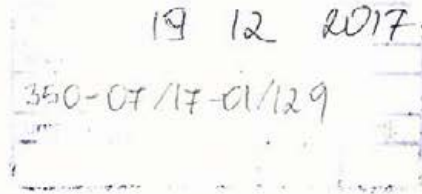 19 12 2017
350-07/17-01/129